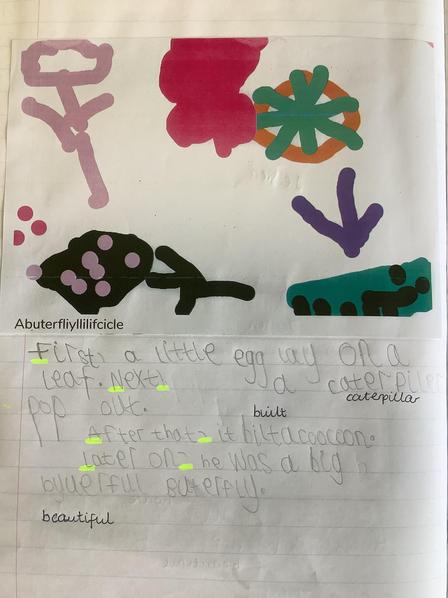 Abuterfliyllilifcicle
First, a little egg lay on a
leaf. Next, a caterpiler
caterpillar
pop out.
built
After that, it biltacoocoon.
Later on, he was a big
buterfly.
beautiful